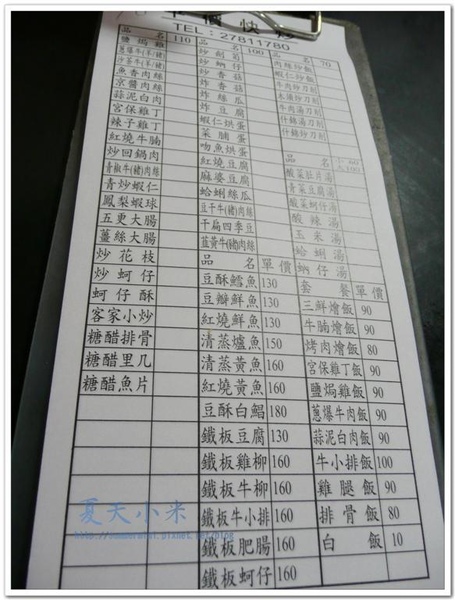 快炒
TEL:27811780
鹽焗雞 110
蔥爆牛(羊/豬)
沙茶牛(羊/豬)
魚香肉絲
京醬肉絲
蒜泥白肉
宮保雞丁
辣子雞丁
紅燒牛腩
炒回鍋肉
青椒牛(豬)肉絲
青炒蝦仁
鳳梨蝦球
五更大腸
薑絲大腸
炒花枝
炒蚵仔
蚵仔酥
客家小炒
糖醋排骨
糖醋里几
糖醋魚片
品名 100
炒劍筍
炒蚋仔
炒香菇
炸香菇
炸絲瓜
炸豆腐
蝦仁烘蛋
菜脯蛋
吻魚烘蛋
紅燒豆腐
麻婆豆腐
蛤蜊絲瓜
豆干牛(豬)肉絲
干扁四季豆
韮黃牛(豬)肉絲
品名 單價
豆酥鱈魚 130
豆瓣鮮魚 130
紅燒鮮魚 130
清蒸爐魚 150
清蒸黃魚 160
紅燒黃魚 160
豆酥白鯧 180
鐵板豆腐 130
鐵板雞柳 160
鐵板牛柳 160
鐵板牛小排 160
鐵板肥腸 160
鐵板蚵仔 160
品名 70
肉絲炒飯
蝦仁炒飯
牛肉炒刀削
木須炒刀削
牛肉湯刀削
什錦湯刀削
什錦炒刀削
品名 小60 大100
酸菜肚片湯
青菜豆腐湯
酸菜蚵仔湯
酸辣湯
玉米湯
蛤蜊湯
蚋仔湯
套餐 單價
三鮮燴飯 90
牛腩燴飯 90
烤肉燴飯 80
宮保雞丁飯 90
鹽焗雞飯 90
蔥爆牛肉飯 90
蒜泥白肉飯 90
牛小排飯 100
雞腿飯 90
排骨飯 80
白飯 10
夏天小米